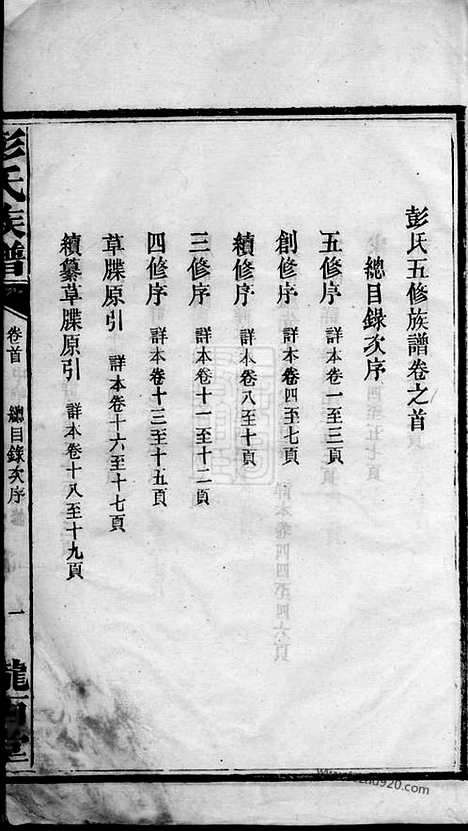 彭氏五修族譜卷之首
總目錄次序
五修序 詳本卷一至三頁
創修序 詳本卷四至七頁
續修序 詳本卷八至十頁
三修序 詳本卷十一至十二頁
四修序 詳本卷十三至十五頁
草牒原引 詳本卷十六至十七頁
續纂草牒原引 詳本卷十八至十九頁
彭氏族譜 卷首 總目錄次序 一